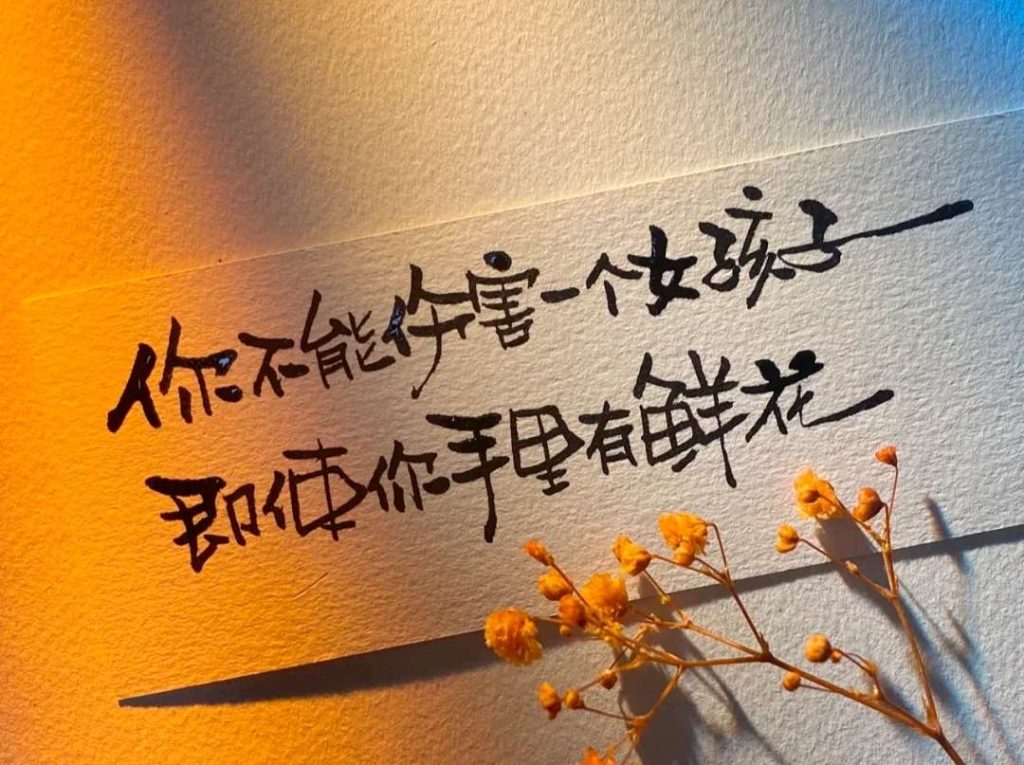 你不能伤害一个女孩子
即使你手里有鲜花